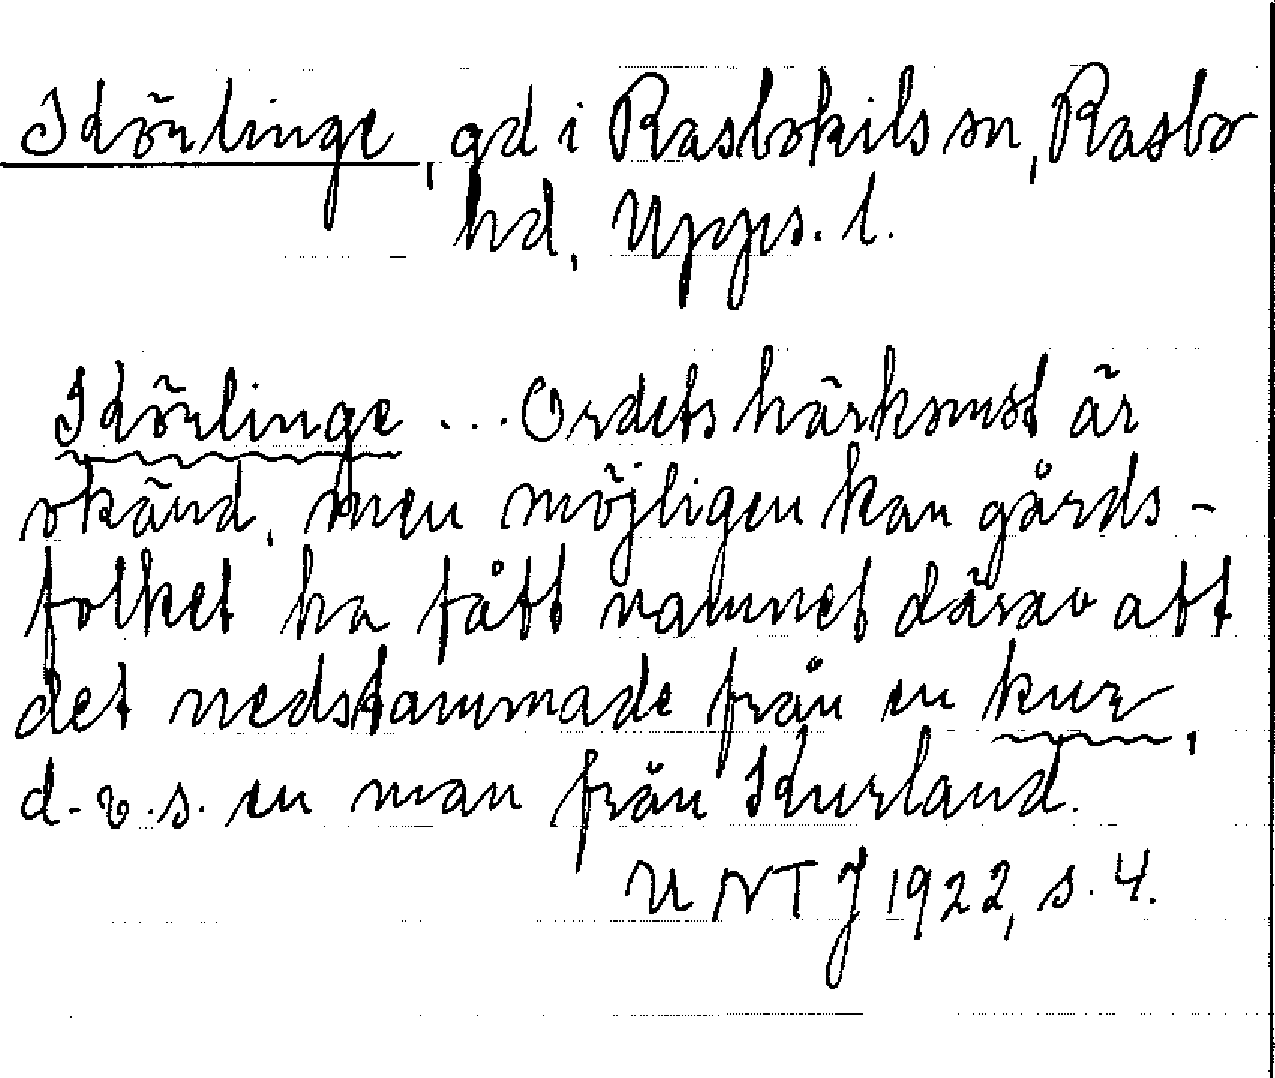 Körlinge, gd i Rasbokils sn, Rasbo
hd, Upps. l.
Körlinge ... Ordets härkomst är
okänd, men möjligen kan gårds-
folket ha fått namnet därav att
det nedstammade från en kur,
d.v.s. en man från Kurland.
UNTJ 1922, s. 4.